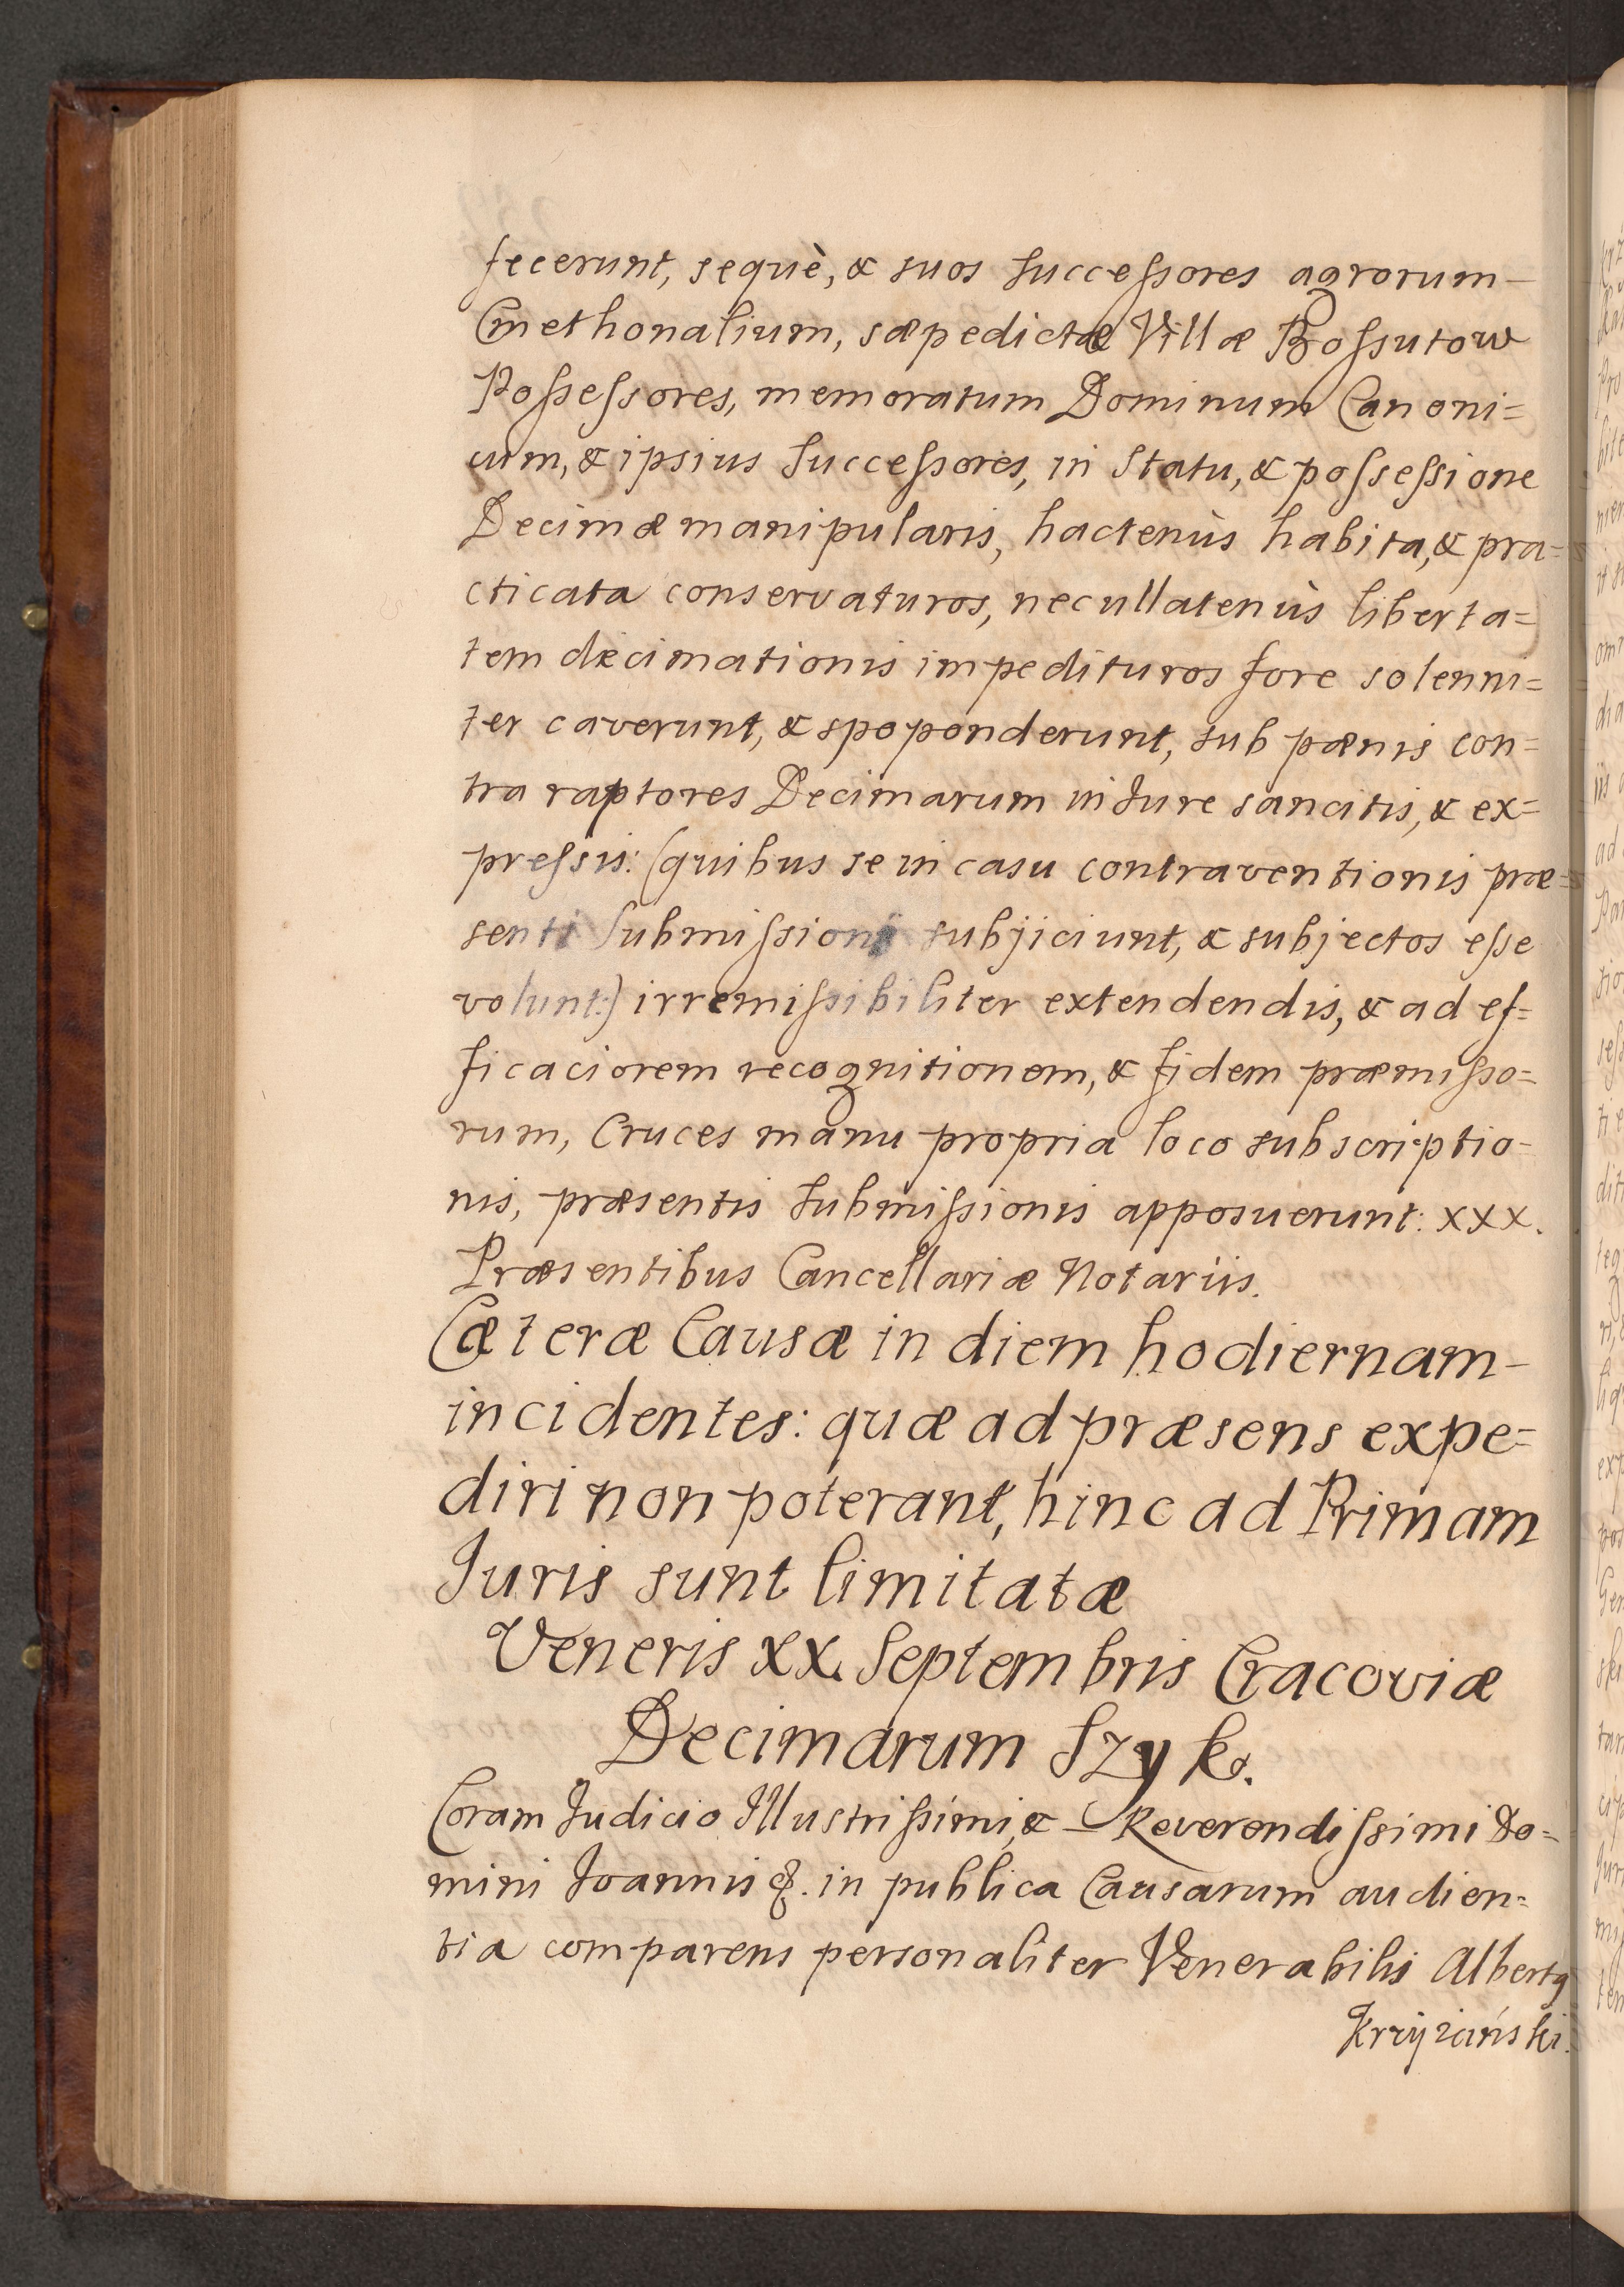 fecerunt, sequè, & suos Succeſsores agrorum—
Cmethonalium, sæpedictæ Villæ Boſsutow
Poſseſsores, memoratum Dominum Canoni=
cum, & ipsius Succeſsores, in Statu, & poſseſsione
Decimæ manipularis, hactenùs habita, & pra=
cticata conservaturos, nec ullatenùs liberta=
tem decimationis impedituros fore solenni=
ter caverunt, & spoponderunt, sub pænis con=
tra raptores Decimarum in Jure sancitis, & ex=
preſsis: (quibus se in casu contraventionis præ=
senti Submiſsioni subjiciunt, & subjectos eſse
volunt:) irremiſsibiliter extendendis, & ad ef=
ficaciorem recognitionem, & fidem præmiſso=
rum, Cruces manu propria loco subscriptio-
nis, præsentis Submiſsionis apposuerunt: XXX.
Præsentibus Cancellariæ Notariis.
Cæteræ Causæ in diem hodiernam—
incidentes: quæ ad præsens expe=
diri non poterant, hinc ad Primam
Juris sunt limitatæ
Veneris XX. Septembris Cracoviæ
Decimarum Szyk.
Coram Judicio Illustriſsimi, & — Reverendiſsimi Do=
mini Joannis &. in publica Causarum audien=
tia comparens personaliter Venerabilis Albertq
Krzyżański.